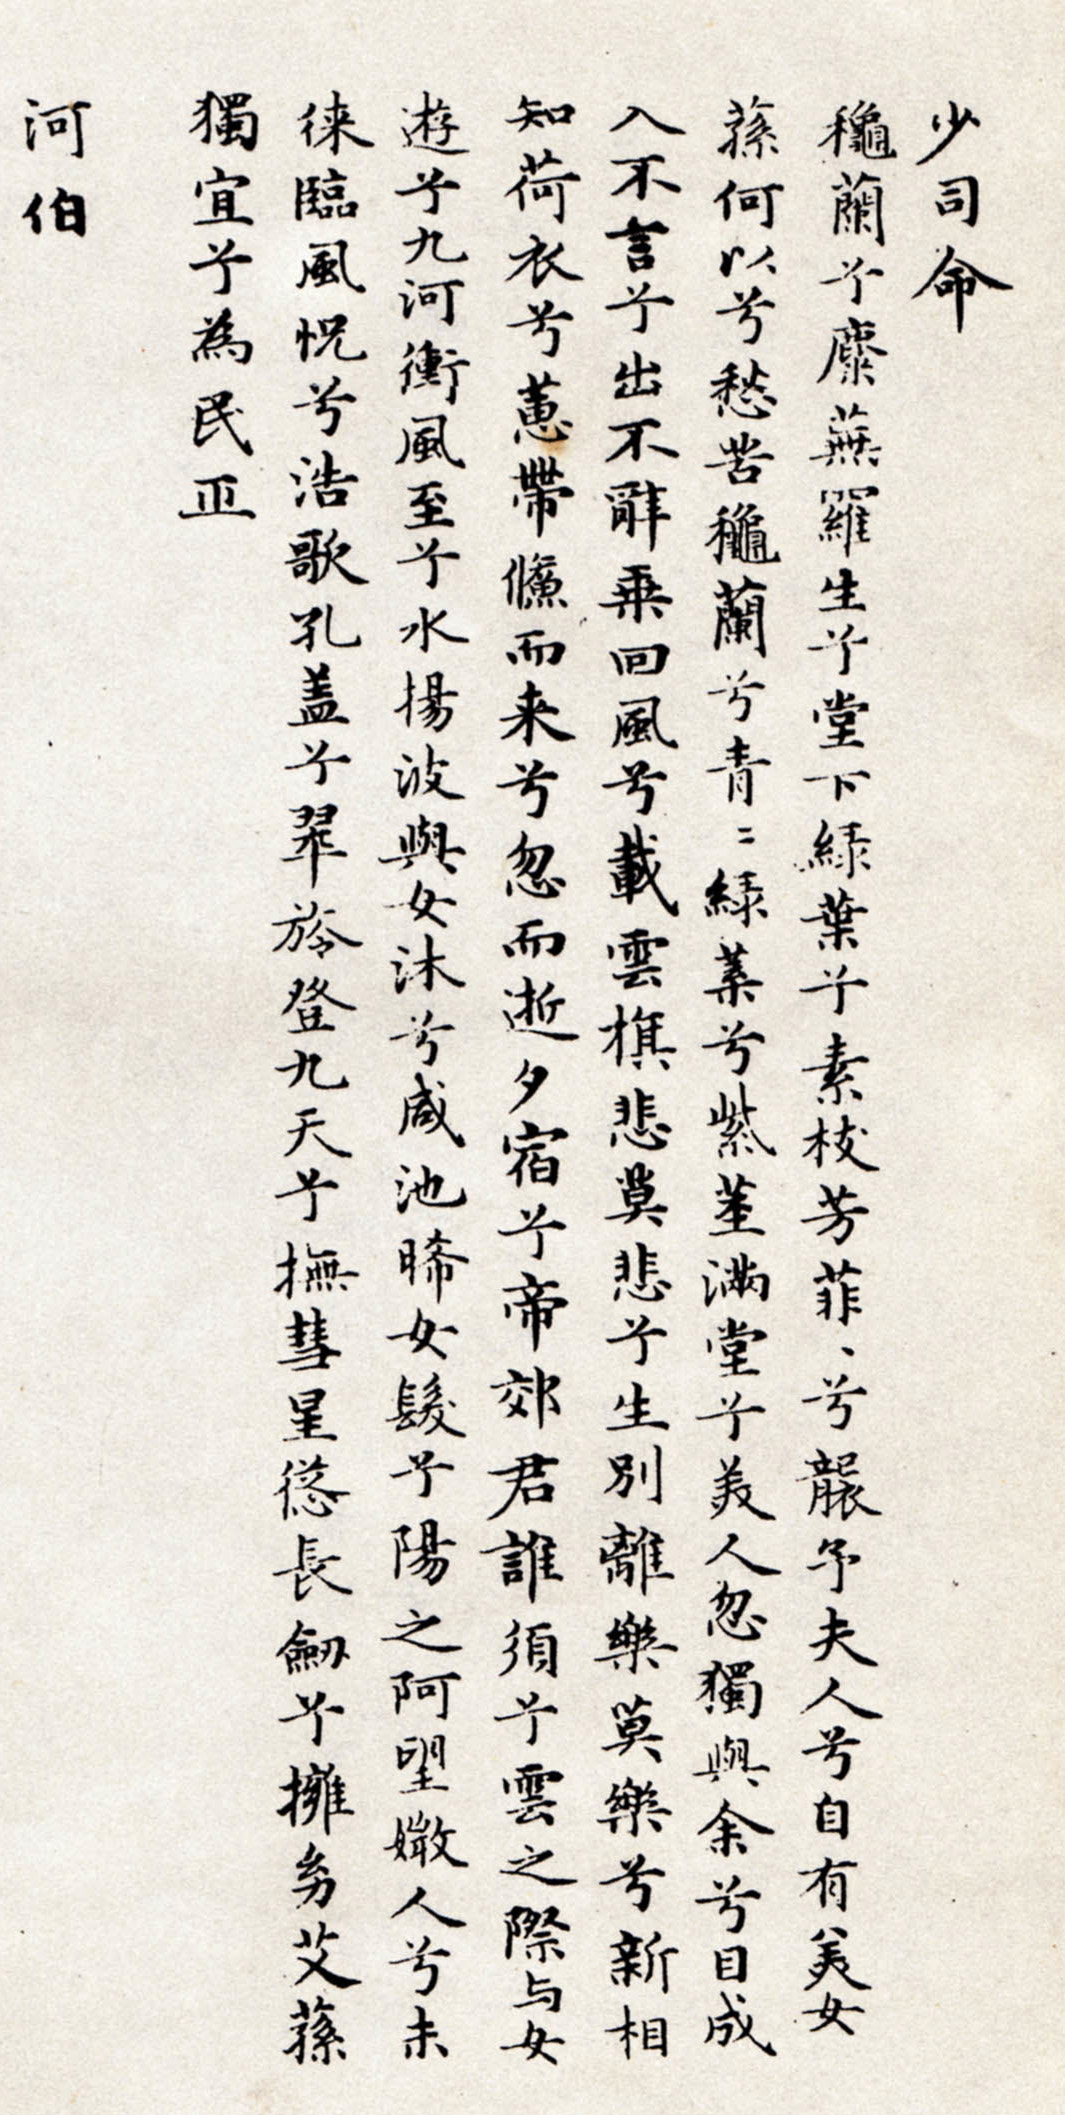 少司命
穐蘭兮麋蕪羅生兮堂下緑葉兮素枝芳菲〻兮襲予夫人兮自有美女
蓀何以兮愁苦穐蘭兮青〻緑葉兮紫莖満堂兮美人忽獨與余兮目成
入不言兮出不辭乗回風兮載雲旗悲莫悲兮生別離樂莫樂兮新相
知荷衣兮蕙帶儵而来兮忽而逝夕宿兮帝郊君誰須兮雲之際与女
遊兮九河衝風至兮水揚波與女沐兮咸池晞女髮兮陽之阿望媺人兮未
徠臨風怳兮浩歌孔盖兮翠旍登九天兮撫彗星慫長劒兮擁㓜艾蓀
獨宜兮為民正
河伯